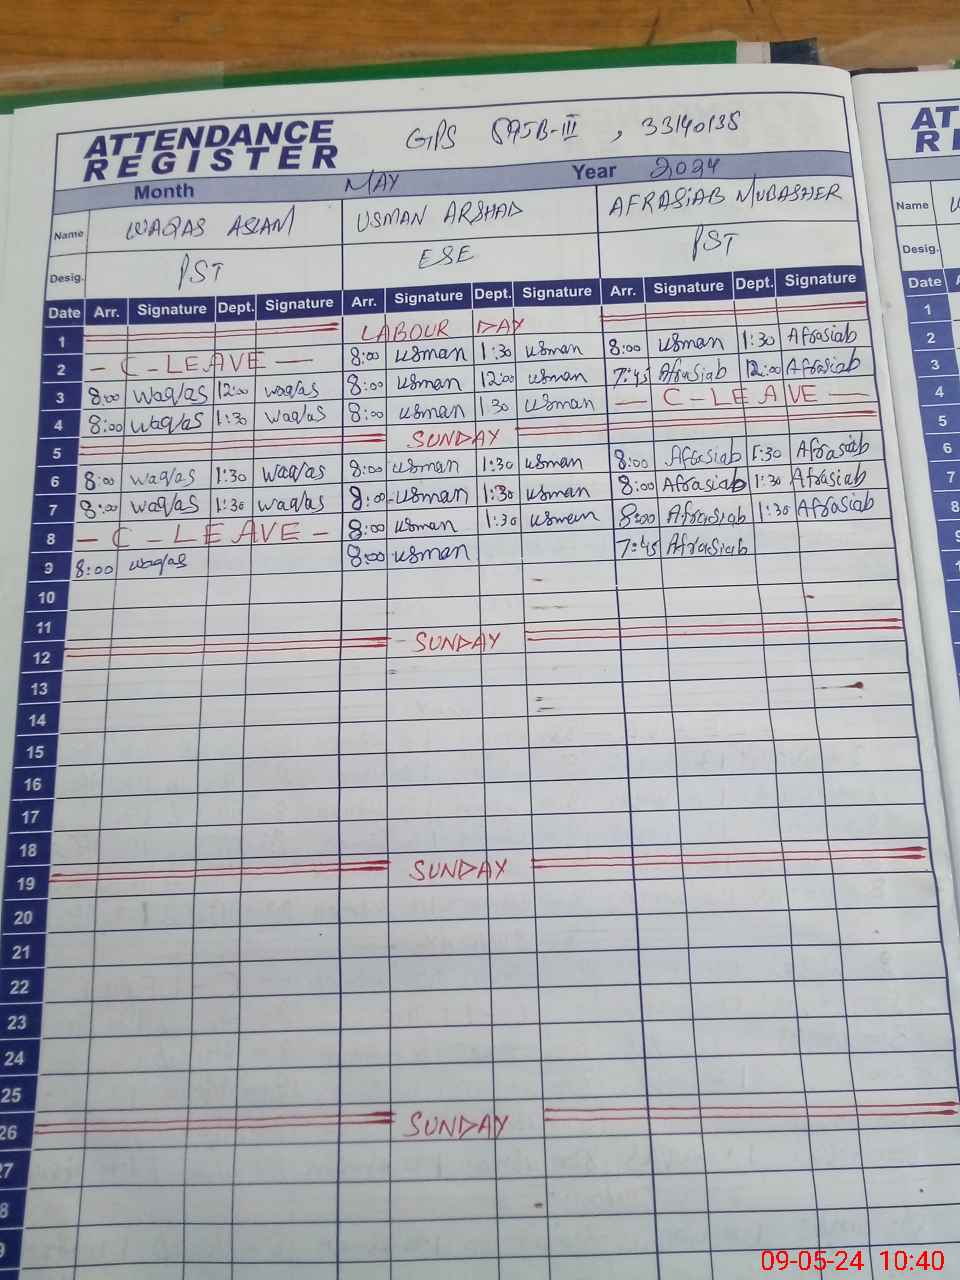 ATTENDANCE REGISTER
GPS 595B-III , 33140135
Month MAY Year 2024
Name WAQAS ASLAM USMAN ARSHAD AFRASiAB MUBASHER
Desig. PST ESE PST
Date Arr. Signature Dept. Signature Arr. Signature Dept. Signature Arr. Signature Dept. Signature
1 LABOUR DAY
2 - C - LEAVE - 8:00 usman 1:30 usman 8:00 usman 1:30 Afrasiab
3 8:00 waqas 12:00 waqas 8:00 usman 12:00 usman 7:45 Afrasiab 12:00 Afrasiab
4 8:00 waqas 1:30 waqas 8:00 usman 1:30 usman - C - LEAVE -
5 SUNDAY
6 8:00 waqas 1:30 waqas 8:00 usman 1:30 usman 8:00 Afrasiab 1:30 Afrasiab
7 8:00 waqas 1:30 waqas 8:00 usman 1:30 usman 8:00 Afrasiab 1:30 Afrasiab
8 - C - LEAVE - 8:00 usman 1:30 usman 8:00 Afrasiab 1:30 Afrasiab
9 8:00 waqas 8:00 usman 7:45 Afrasiab
10
11
12 SUNDAY
13
14
15
16
17
18
19 SUNDAY
20
21
22
23
24
25
26 SUNDAY
27
8
9
AT
RE
Name
Desig.
Date
1
2
3
4
5
6
7
8
9
1
09-05-24 10:40